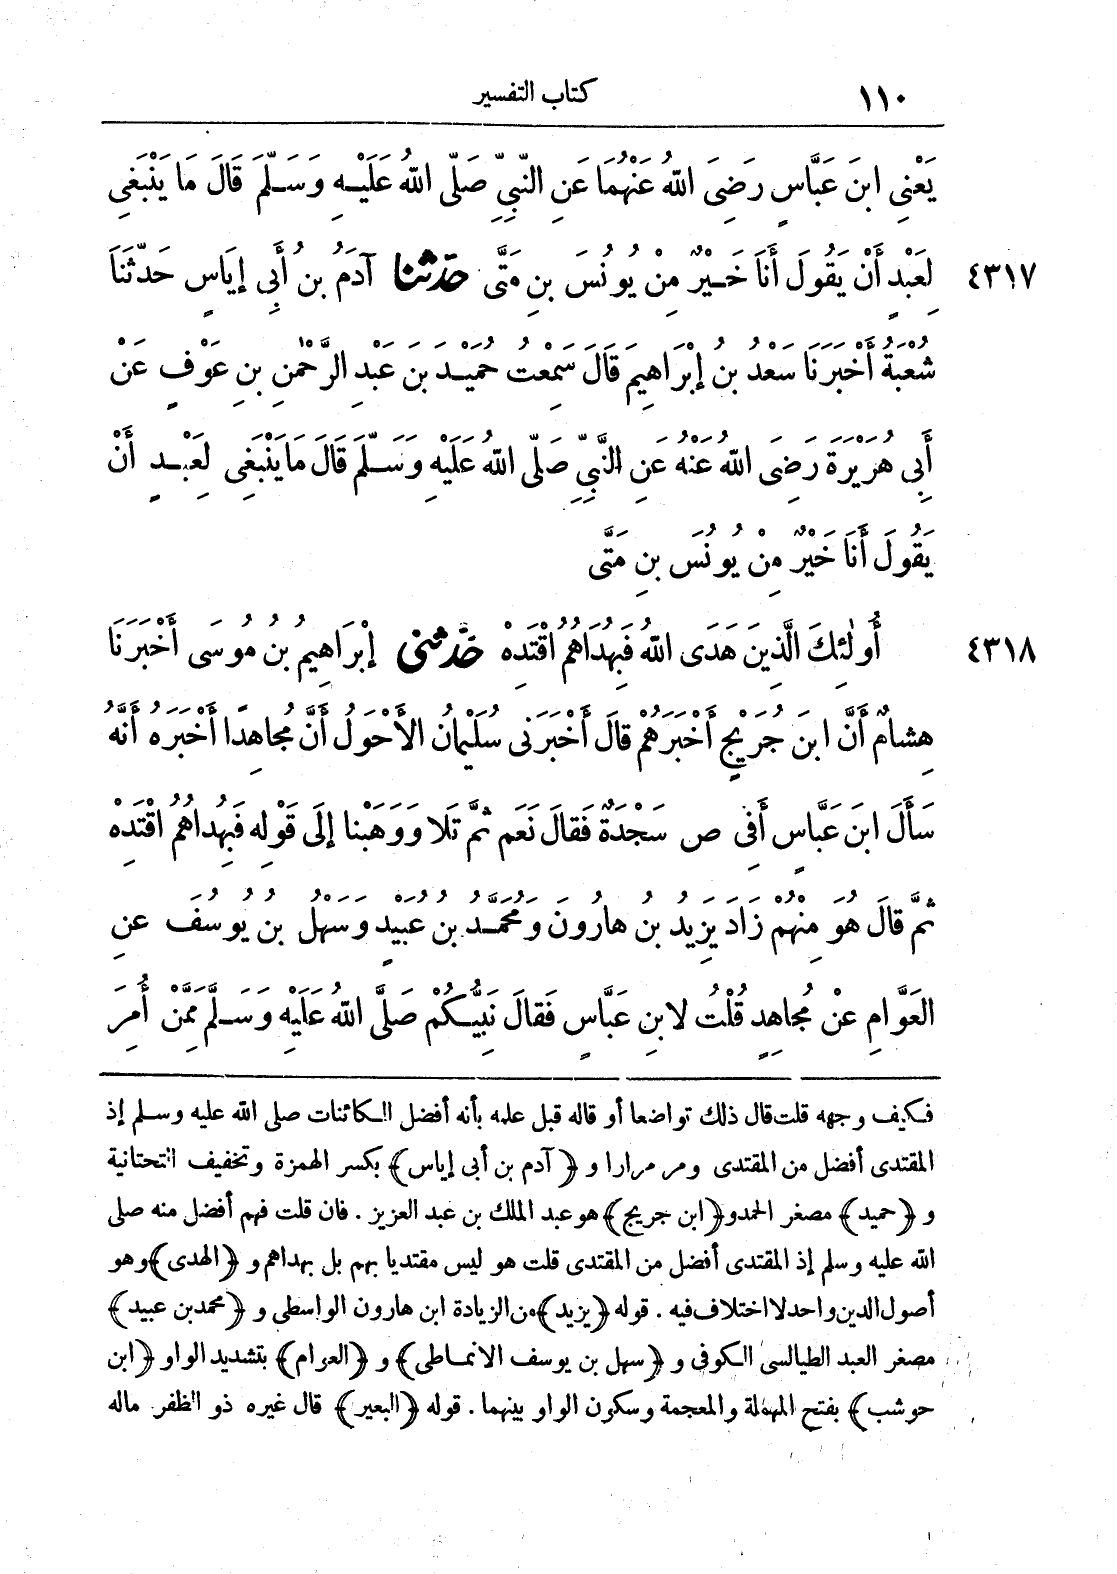 ١١٠ كتاب التفسير
يَعْنِى ابنَ عَبَّاسٍ رَضِىَ اللهُ عَنْهُمَا عَنِ النَّبِيِّ صَلَّى اللهُ عَلَيْـهِ وَسَـلَّمَ قَالَ مَا يَنْبَغِى
٤٣١٧ لِعَبْدٍ أَنْ يَقُولَ أَنَا خَـيْرٌ مِنْ يُونُسَ بنِ مَتَّى حَدَّثَنا آدَمُ بنُ أَبِى إِيَاسٍ حَدَّثَنَا
شُعْبَةُ أَخْبَرَنَا سَعْدُ بنُ إِبْرَاهِيمَ قَالَ سَمِعْتُ حُمَيْـدَ بنَ عَبْدِ الرَّحْمٰنِ بنِ عَوْفٍ عَنْ
أَبِى هُرَيْرَةَ رَضِىَ اللهُ عَنْهُ عَنِ النَّبِيِّ صَلَّى اللهُ عَلَيْهِ وَسَـلَّمَ قَالَ مَا يَنْبَغِى لِعَبْـدٍ أَنْ
يَقُولَ أَنَا خَيْرٌ مِنْ يُونُسَ بنِ مَتَّى
٤٣١٨ أُولٰئِكَ الَّذِينَ هَدَى اللهُ فَبِهُدَاهُمُ اقْتَدِهْ حَدَّثَنى إِبْرَاهِيمُ بنُ مُوسَى أَخْبَرَنَا
هِشامٌ أَنَّ ابنَ جُرَيْجٍ أَخْبَرَهُمْ قالَ أَخْبَرَنى سُلَيْمانُ الأَحْوَلُ أَنَّ مُجاهِدًا أَخْبَرَهُ أَنَّهُ
سَأَلَ ابنَ عَبَّاسٍ أَفِى ص سَجْدَةٌ فَقالَ نَعَم ثُمَّ تَلا وَوَهَبْنا إِلَى قَوْلِهِ فَبِهُداهُمُ اقْتَدِهْ
ثُمَّ قالَ هُوَ مِنْهُمْ زَادَ يَزِيدُ بنُ هارُونَ وَمُحَمَّـدُ بنُ عُبَيْدٍ وَسَهْلُ بنُ يُوسُفَ عنِ
العَوَّامِ عَنْ مُجاهِدٍ قُلْتُ لابنِ عَبَّاسٍ فَقالَ نَبِيُّـكُمْ صَلَّى اللهُ عَلَيْهِ وَسَـلَّمَ مِمَّنْ أُمِرَ
فـكيف وجهه قلت قال ذلك تواضعا أو قاله قبل علمه بأنه أفضل الـكائنات صلى الله عليه وسـلم إذ
المقتدى أفضل من المقتدى ومر مرارا و ﴿آدم بن أبى إياس﴾ بكسر الهمزة وتخفيف التحتانية
و ﴿حميد﴾ مصغر الحمد و﴿ابن جريج﴾ هو عبد الملك بن عبد العزيز . فان قلت فهم أفضل منه صلى
الله عليه وسلم إذ المقتدى أفضل من المقتدى قلت هو ليس مقتديا بهم بل بهداهم و ﴿الهدى﴾ وهو
أصول الدين واحد لا اختلاف فيه . قوله ﴿يزيد﴾ من الزيادة ابن هارون الواسطى و ﴿محمد بن عبيد﴾
مصغر العبد الطيالسى الـكوفى و ﴿سهل بن يوسف الانمـاطى﴾ و ﴿العوام﴾ بتشديد الواو ﴿ابن
حوشب﴾ بفتح المهملة والمعجمة وسكون الواو بينهما . قوله ﴿البعير﴾ قال غيره ذو الظفر ماله